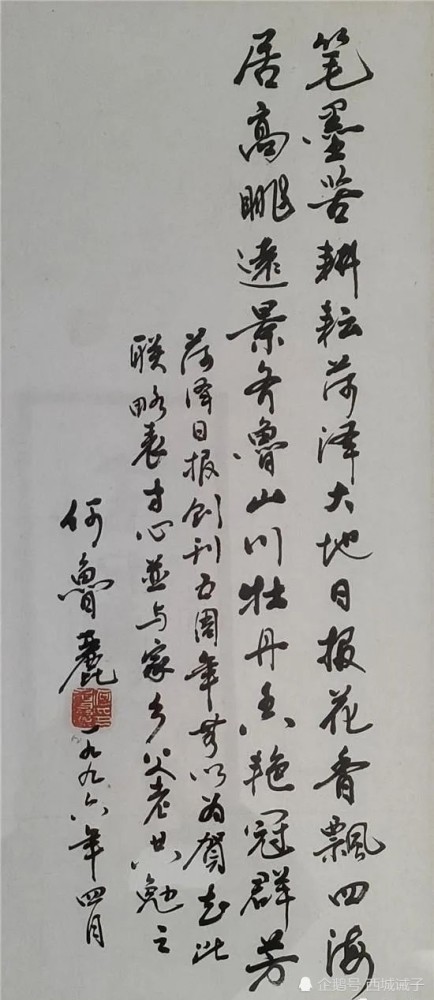 笔墨苦耕耘菏泽大地日报花香飘四海
居高眺远景齐鲁山川牡丹吐艳冠群芳
菏泽日报创刊五周年 以为贺 此
联略表寸心並与家乡父老共勉之
何魯麗
一九九六年四月
企鹅号 西城诚子